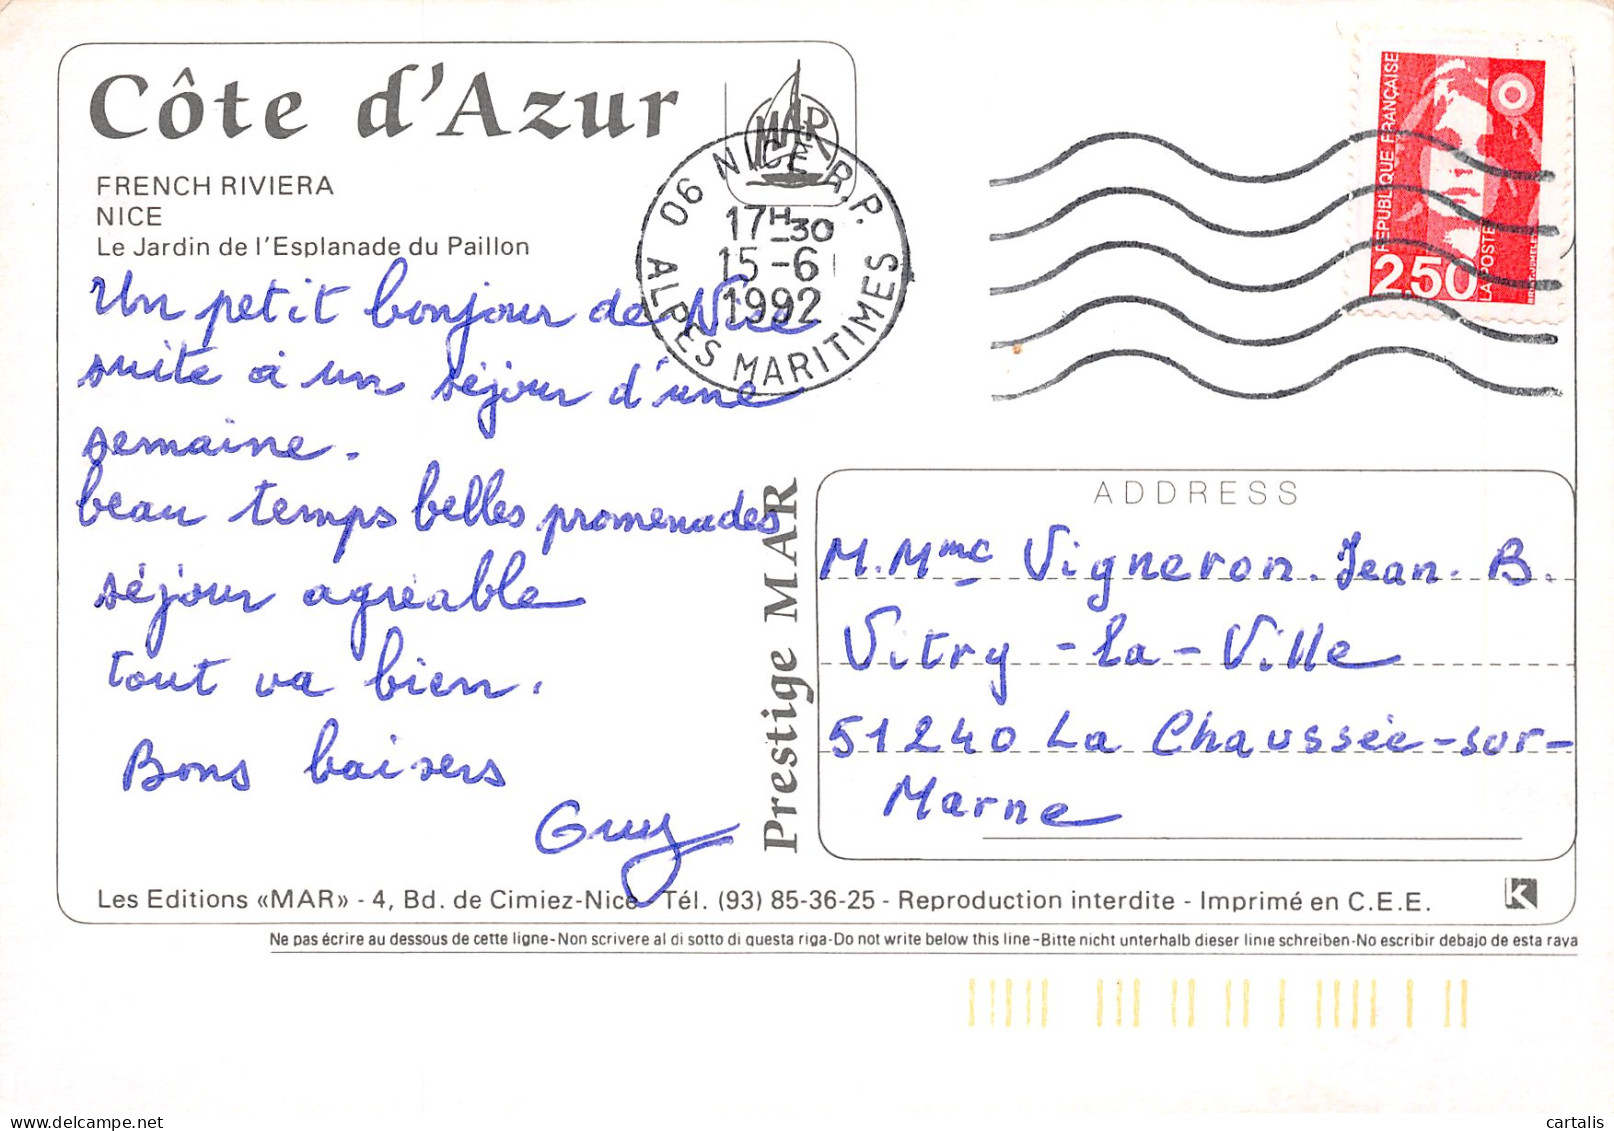 Côte d'Azur
FRENCH RIVIERA
NICE
Le Jardin de l'Esplanade du Paillon
MAR
06 NICE R.P.
17H30
15-6
1992
ALPES MARITIMES
REPUBLIQUE FRANÇAISE
LA POSTE
2.50
Un petit bonjour de Nice
suite à un séjour d'une
semaine.
beau temps belles promenades
séjour agréable
tout va bien.
Bons baisers
Guy
Prestige MAR
ADDRESS
M. Mme Vigneron. Jean. B.
Vitry-la-Ville
51240 La Chaussée-sur-
Marne
Les Editions «MAR» - 4, Bd. de Cimiez-Nice Tél. (93) 85-36-25 - Reproduction interdite - Imprimé en C.E.E.
K
Ne pas écrire au dessous de cette ligne-Non scrivere al di sotto di questa riga-Do not write below this line-Bitte nicht unterhalb dieser linie schreiben-No escribir debajo de esta raya
cartalis